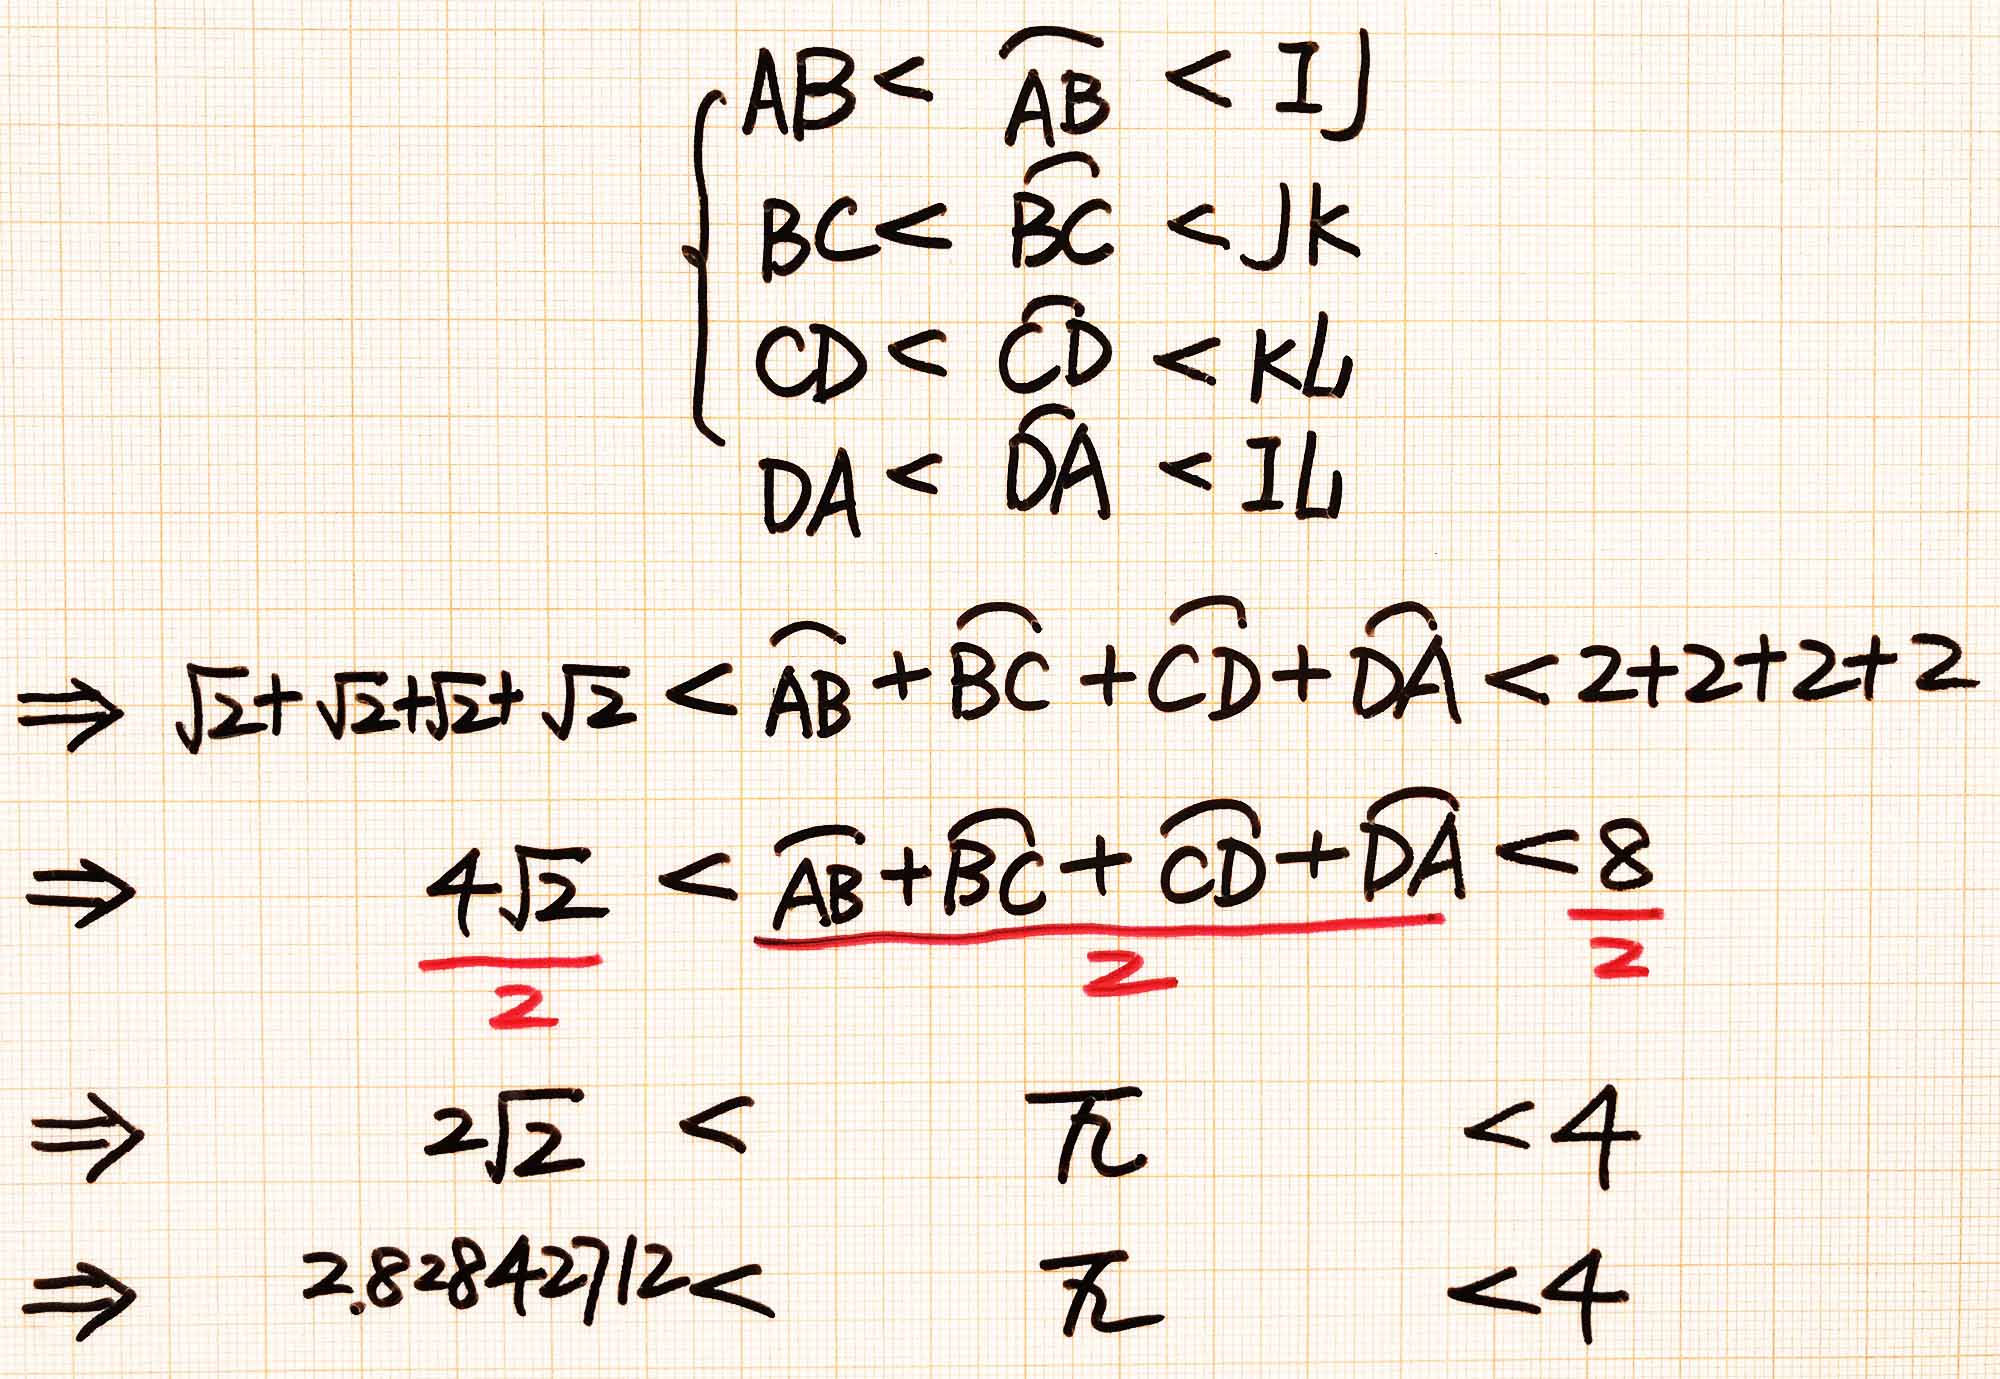 AB < A͡B < IJ
BC < B͡C < JK
CD < C͡D < KL
DA < D͡A < IL
⇒ √2 + √2 + √2 + √2 < A͡B + B͡C + C͡D + D͡A < 2+2+2+2
⇒ 4√2 < A͡B + B͡C + C͡D + D͡A < 8
2 2 2
⇒ 2√2 < π < 4
⇒ 2.82842712 < π < 4